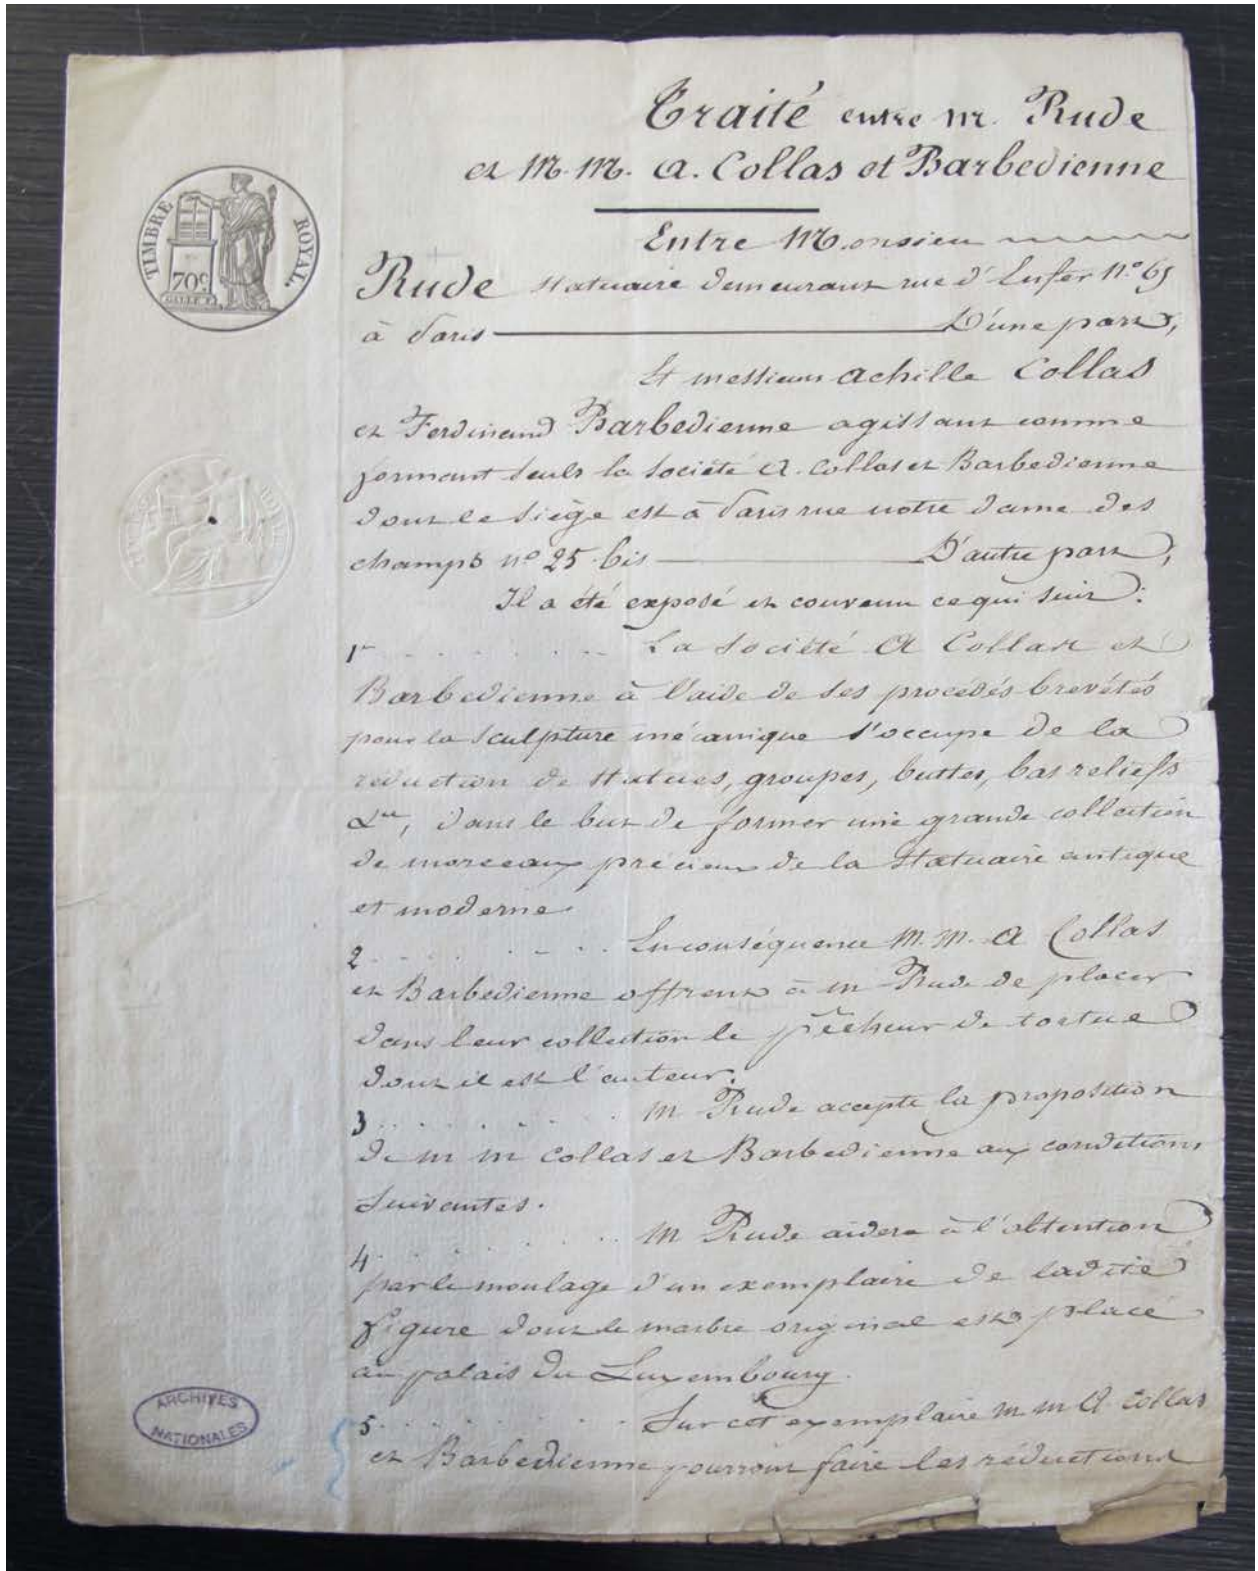 Traité entre M. Rude
et M.M. A. Collas et Barbedienne
Entre Monsieur
Rude statuaire demeurant rue d'Enfer N° 65
à Paris D'une part,
Et messieurs Achille Collas
et Ferdinand Barbedienne agissant comme
formant seuls la Société A. Collas et Barbedienne
dont le siège est à Paris rue notre dame des
champs n° 25 bis D'autre part,
Il a été exposé et convenu ce qui suit :
1r La Société A Collas et
Barbedienne à l'aide de ses procédés brevétés
pour la Sculpture mécanique s'occupe de la
réduction de statues, groupes, bustes, bas reliefs
&a, dans le but de former une grande collection
de morceaux précieux de la statuaire antique
et moderne.
2 En conséquence M.M. A Collas
et Barbedienne offrent à M Rude de placer
dans leur collection le pêcheur de tortue
dont il est l'auteur.
3 M Rude accepte la proposition
de M M Collas et Barbedienne aux conditions
suivantes.
4 M Rude aidera à l'obtention
par le moulage d'un exemplaire de ladite
figure dont le marbre original est placé
au palais du Luxembourg.
5 Sur cet exemplaire M M A. Collas
et Barbedienne pourront faire les réductions
TIMBRE ROYAL.
70c
ARCHIVES
NATIONALES